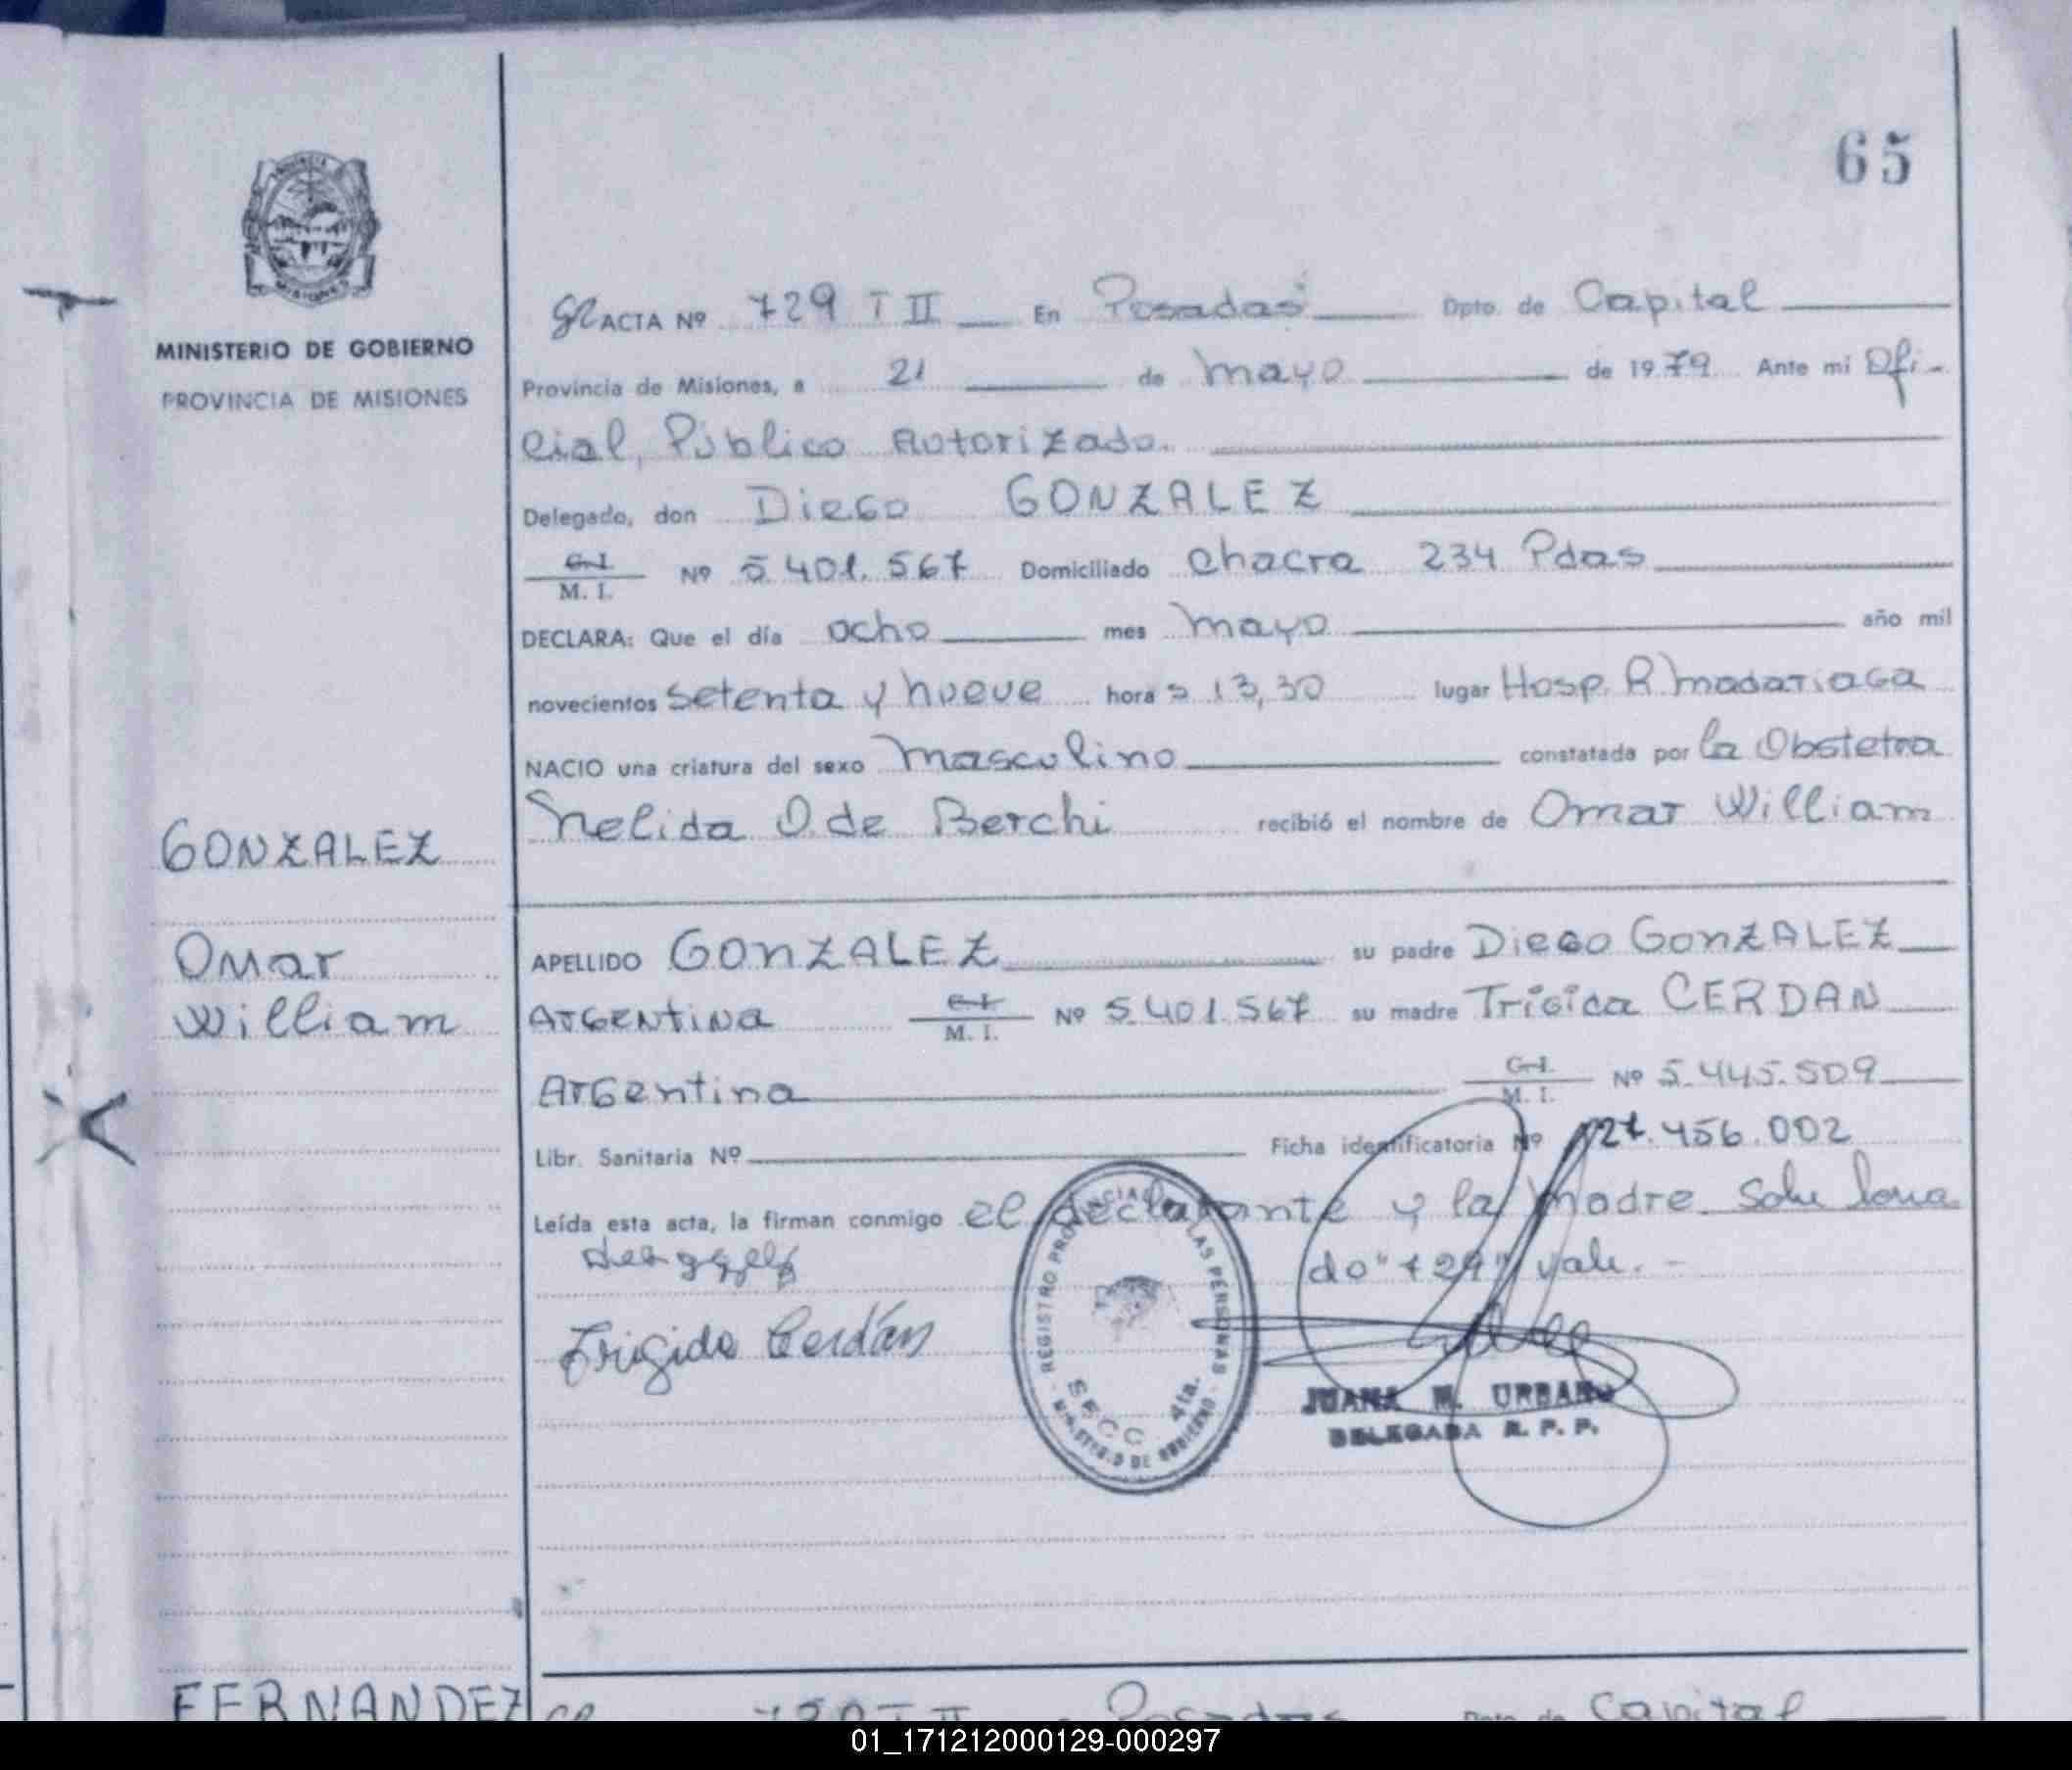 65
MINISTERIO DE GOBIERNO
PROVINCIA DE MISIONES
ACTA Nº 729 T II En Posadas Dpto. de Capital
Provincia de Misiones, a 21 de mayo de 1979 Ante mi Ofi-
cial, Público Autorizado.
Delegado, don Diego GONZALEZ
C.I. M. I. Nº 5.401.567 Domiciliado Chacra 234 Pdas
DECLARA: Que el día ocho mes mayo año mil
novecientos setenta y nueve hora s 13,30 lugar Hosp. R. Madariaga
NACIO una criatura del sexo masculino constatada por la Obstetra
Nelida O. de Berchi recibió el nombre de Omar William
GONZALEZ
Omar
William
APELLIDO GONZALEZ su padre Diego GONZALEZ
ARGENTINA C.I. M. I. Nº 5.401.567 su madre Trigica CERDAN
Argentina C.I. M. I. Nº 5.445.509
Libr. Sanitaria Nº Ficha identificatoria Nº 27.456.002
Leída esta acta, la firman conmigo el declarante y la madre. Sobre borra
do "729" vale. -
Cerdán
REGISTRO PROVINCIAL DE LAS PERSONAS
SECC 4ta.
MINISTERIO DE GOBIERNO
JUANA M. URBANO
DELEGADA R. P. P.
FERNANDEZ
730 T II Posadas Dpto. de Capital
01_171212000129-000297